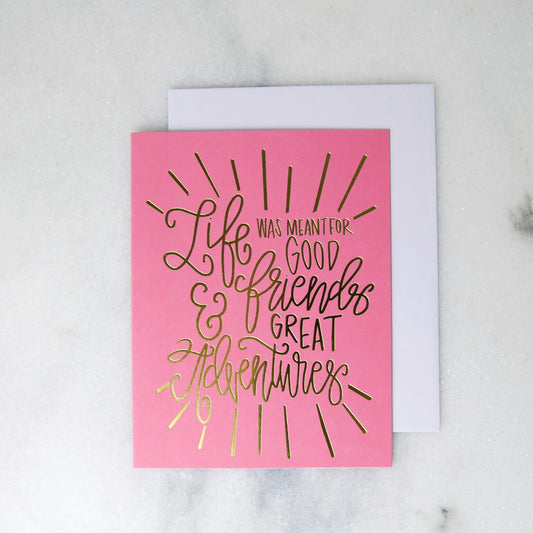 Life WAS MEANT FOR
GOOD
friends
& GREAT
Adventures